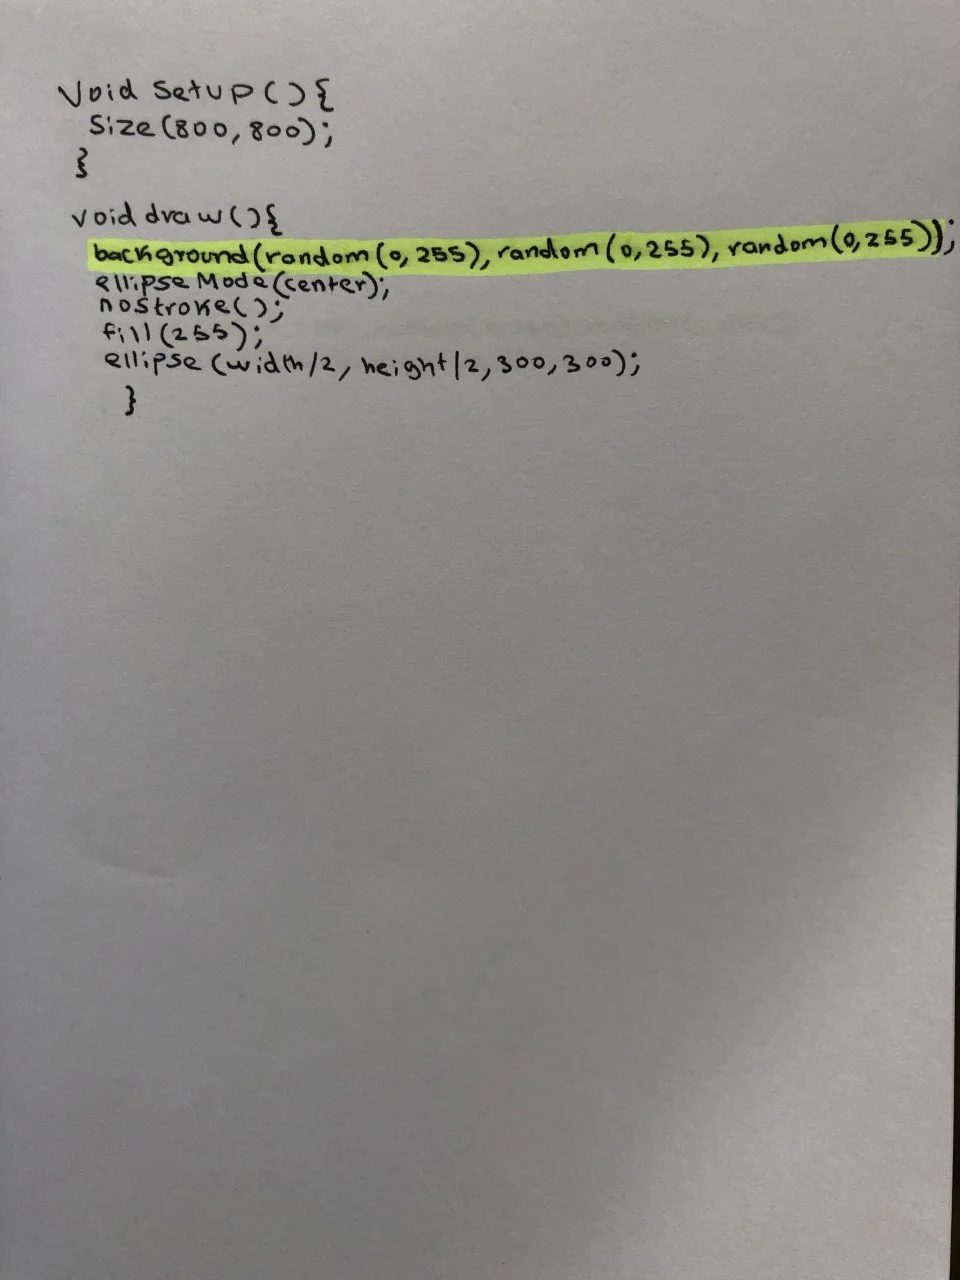 void setup(){
size(800, 800);
}
void draw(){
background(random(0, 255), random(0, 255), random(0, 255));
ellipse Mode(center);
nostroke();
fill(255);
ellipse (width/2, height/2, 300, 300);
}